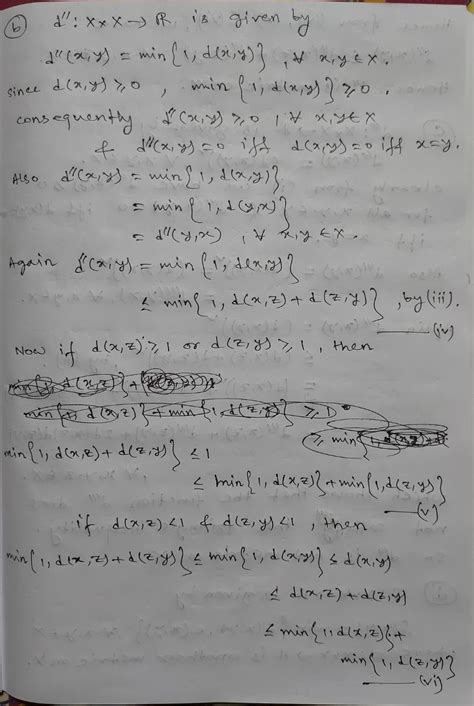 (b) d'' : X x X → R is given by
d''(x,y) = min{1, d(x,y)}, ∀ x,y ∈ X.
since d(x,y) ≥ 0, min{1, d(x,y)} ≥ 0.
consequently d''(x,y) ≥ 0, ∀ x,y ∈ X
& d''(x,y) = 0 iff d(x,y) = 0 iff x=y.
Also d''(x,y) = min{1, d(x,y)}
= min{1, d(y,x)}
= d''(y,x), ∀ x,y ∈ X.
Again d''(x,y) = min{1, d(x,y)}
≤ min{1, d(x,z) + d(z,y)}, by (iii).
(iv)
Now if d(x,z) ≥ 1 or d(z,y) ≥ 1, then
min{1, d(x,z) + d(z,y)} ≤ 1
≤ min{1, d(x,z)} + min{1, d(z,y)}
(v)
if d(x,z) < 1 & d(z,y) < 1, then
min{1, d(x,z) + d(z,y)} ≤ min{1, d(x,y)} ≤ d(x,y)
≤ d(x,z) + d(z,y)
≤ min{1, d(x,z)} +
min{1, d(z,y)}
(vi)